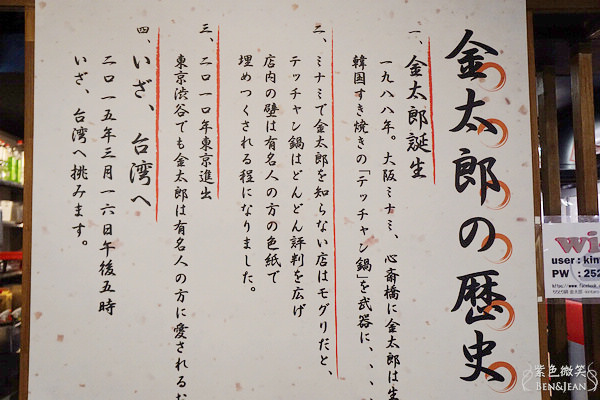 金太郎の歴史
一、金太郎誕生
一九八八年。大阪ミナミ、心斎橋に金太郎は生
韓国すき焼きの「テッチャン鍋」を武器に、、、
二、ミナミで金太郎を知らない店はモグリだと、
テッチャン鍋はどんどん評判を広げ
店内の壁は有名人の方の色紙で
埋めつくされる程になりました。
三、二〇一〇年東京進出
東京渋谷でも金太郎は有名人の方に愛されるお
四、いざ、台湾へ
二〇一五年三月一六日午後五時
いざ、台湾へ挑みます。
wi
user : kin
PW : 252
紫色微笑
BEN&JEAN